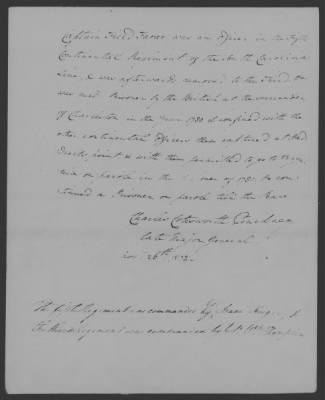 Captain Field Farrar was an Officer in the fifth
Continental Regiment of the South Carolina
Line, & was afterwards removed to the Third. He
was made Prisoner by the British at the surrender
of Charleston in the Year 1780 & confined with the
other continental Officers then captured at Had
drells point & with them permitted to go to Virgi
nia on parole in the of 1781. He con
tinued a Prisoner on parole till the Peace
Charles Cotesworth Pinckney
late Major General
Nov. 26th
The fifth Regiment was commanded by Isaac Huger, &
the third regiment was commanded by Thompson